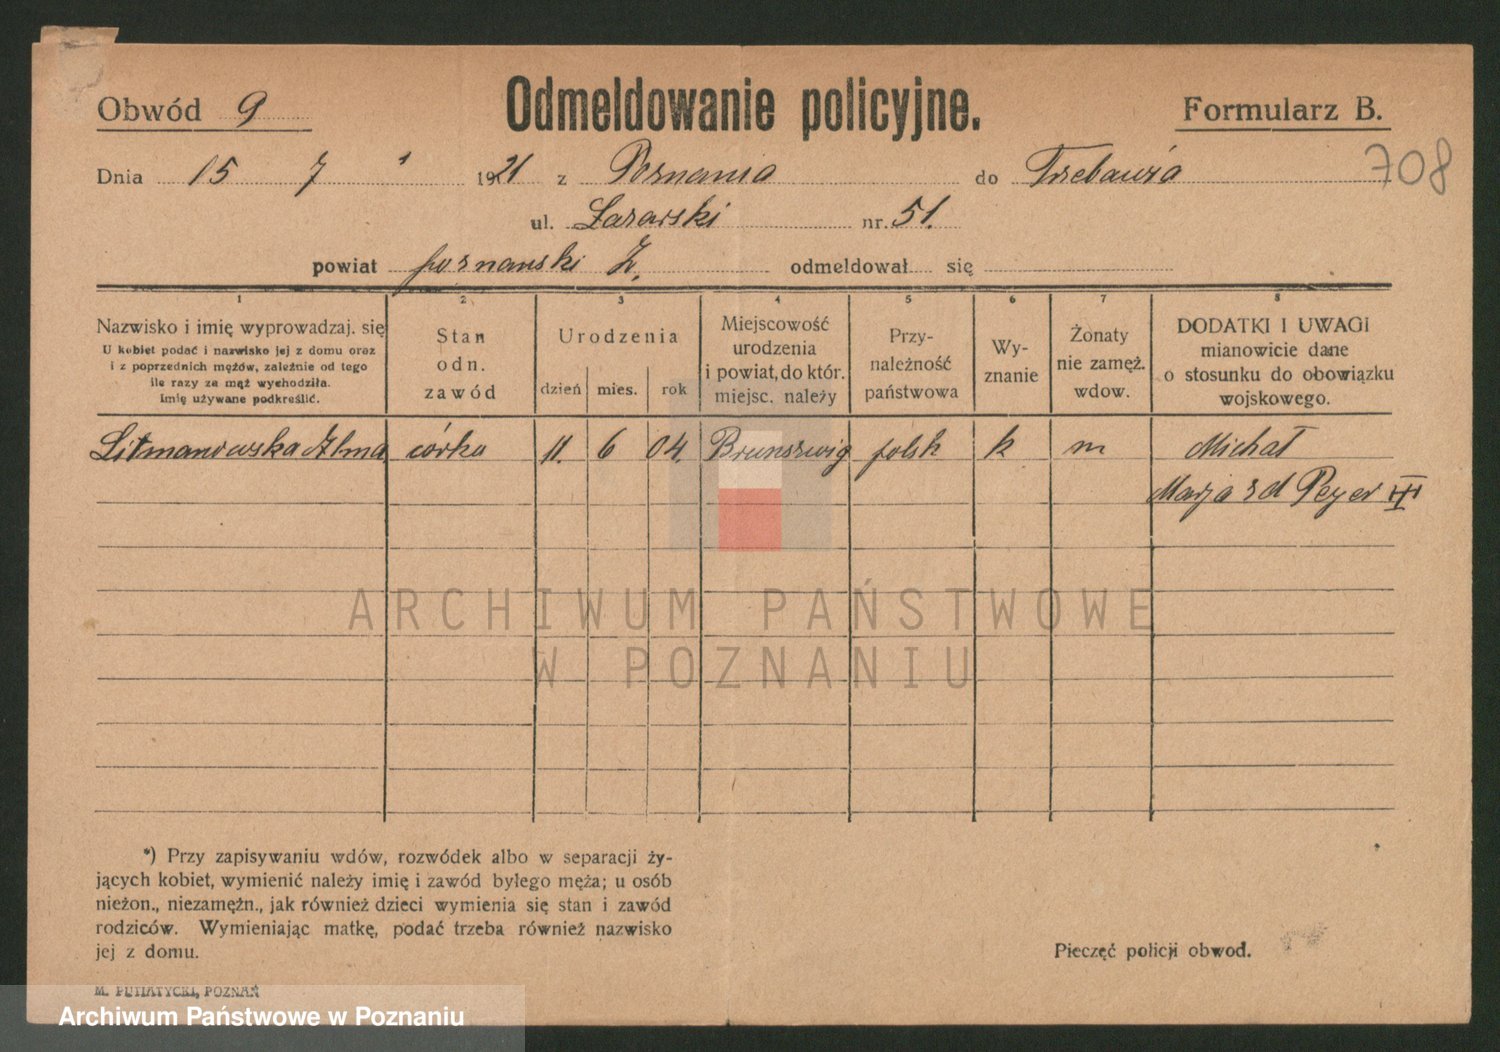 Obwód 9
Odmeldowanie policyjne.
Formularz B.
708
Dnia 15 7 1921 z Poznania do
ul. Łazarski nr. 51.
powiat poznanski Z. odmeldował się
1 2 3 4 5 6 7 8
Nazwisko i imię wyprowadzaj. się
U kobiet podać i nazwisko jej z domu oraz
i z poprzednich mężów, zależnie od tego
ile razy za mąż wychodziła.
Imię używane podkreślić.
Stan
odn.
zawód
Urodzenia
dzień mies. rok
Miejscowość
urodzenia
i powiat, do któr.
miejsc. należy
Przy-
należność
państwowa
Wy-
znanie
Żonaty
nie zamęż.
wdow.
DODATKI I UWAGI
mianowicie dane
o stosunku do obowiązku
wojskowego.
Litmanowska córka 11. 6 04. Brunszwig polsk k m Michał
Marja z d Peyer III
ARCHIWUM PAŃSTWOWE
W POZNANIU
*) Przy zapisywaniu wdów, rozwódek albo w separacji ży-
jących kobiet, wymienić należy imię i zawód byłego męża; u osób
nieżon., niezamężn., jak również dzieci wymienia się stan i zawód
rodziców. Wymieniając matkę, podać trzeba również nazwisko
jej z domu.
Pieczęć policji obwod.
M. PUTIATYCKI, POZNAŃ
Archiwum Państwowe w Poznaniu